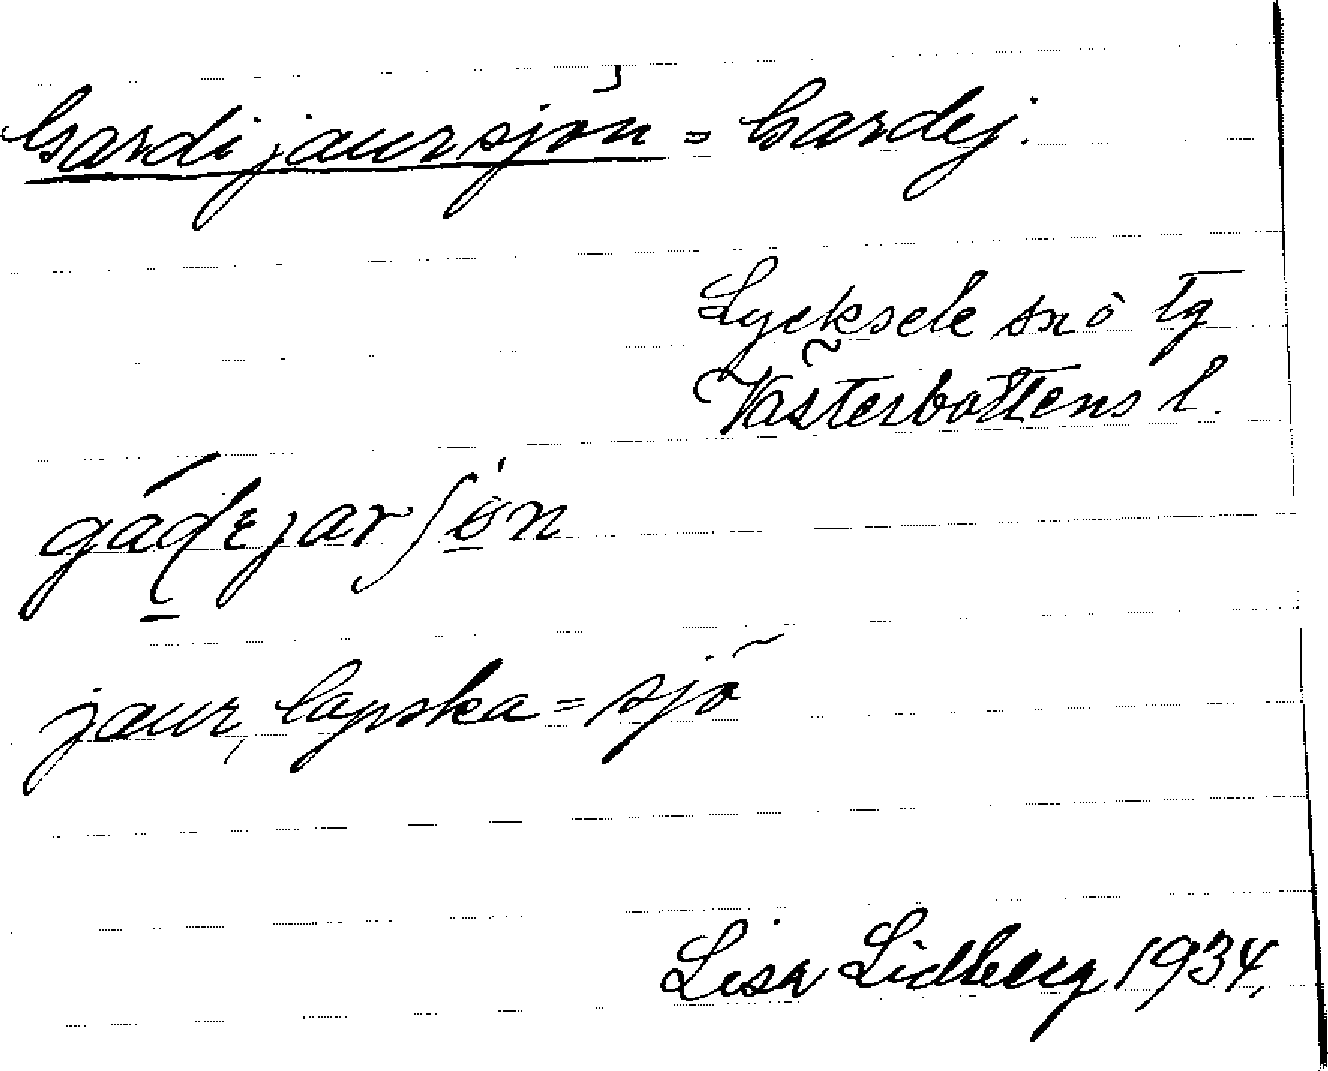 Gardijaursjön = Gardej.
Lycksele snö tg
Västerbottens l.
jaur, lapska = sjö
Lisa Lidberg 1934.